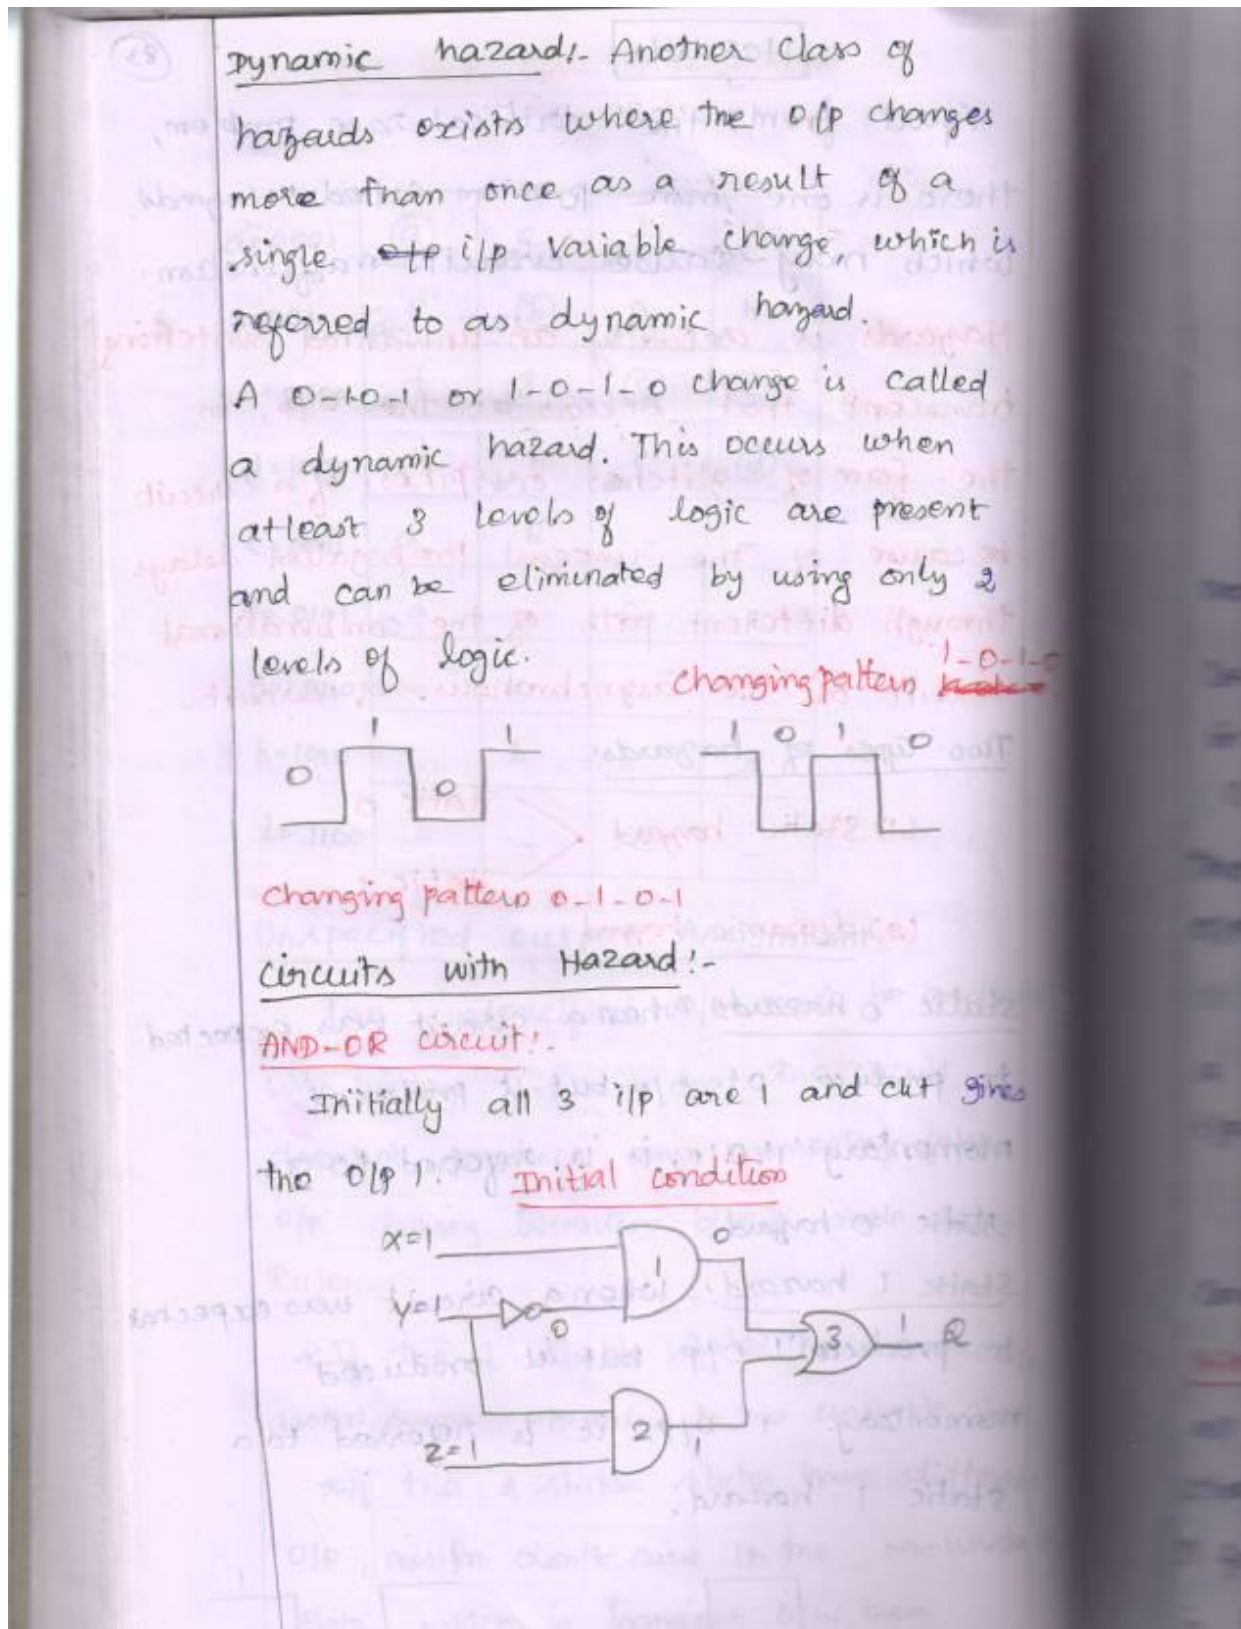 Dynamic hazard:- Another class of
hazards exists where the o/p changes
more than once as a result of a
single i/p variable change, which is
referred to as dynamic hazard.
A 0-1-0-1 or 1-0-1-0 change is called
a dynamic hazard. This occurs when
atleast 3 levels of logic are present
and can be eliminated by using only 2
levels of logic.
changing pattern 1-0-1-0
0 1 0 1
1 0 1 0
changing pattern 0-1-0-1
circuits with Hazard:-
AND-OR circuit:-
Initially all 3 i/p are 1 and ckt gives
the o/p 1.
Initial condition
x=1 1 0
y=1 0 3 1 Q
z=1 2 1